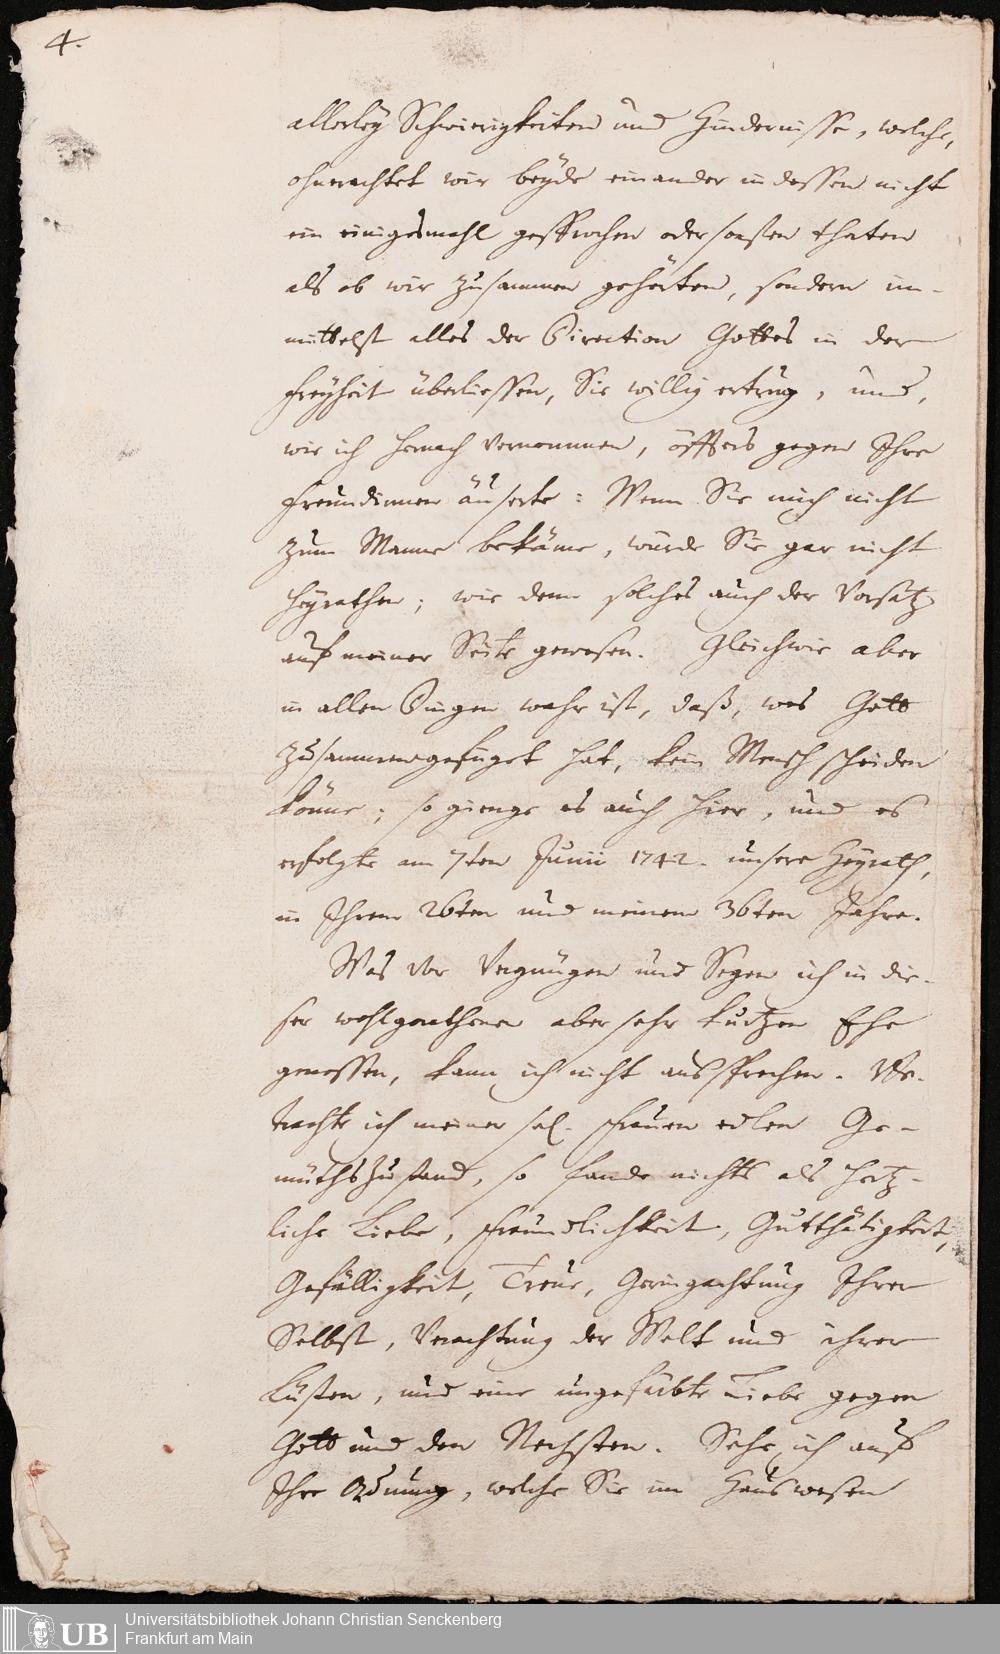 4.
allerley Schwierigkeiten und Hindernisse, welche,
ohnerachtet wir beyde einander indessen nicht
ein einigesmahl gesprochen oder sonsten thaten
als ob wir zusammen gehörten, sondern im-
mittelst alles der Direction Gottes in der
Freyheit überliessen, Sie willig ertrug, und,
wie ich hernach vernommen, öffters gegen Ihre
Freundinnen äuserte: Wenn Sie mich nicht
zum Manne bekäme, würde Sie gar nicht
heyrathen; wie denn solches auch der Vorsatz
auf meiner Seite gewesen. Gleichwie aber
in allen Dingen wahr ist, daß, was Gott
zusammengefüget hat, kein Mensch scheiden
könne; so gienge es auch hier, und es
erfolgte am 7ten Junii 1742. unsere Heyrath,
in Ihrem 26ten und meinem 36ten Jahre.
Was vor Vergnügen und Segen ich in die-
ser wohlgerathenen aber sehr kurtzen Ehe
genossen, kann ich nicht aussprechen. Be-
trachte ich meiner sel. Frauen edlen Ge-
müthszustand, so fande nichts als hertz-
liche Liebe, Freundlichkeit, Gutthätigkeit,
Gefälligkeit, Treue, Geringachtung Ihrer
Selbst, Verachtung der Welt und ihrer
Lüsten, und eine ungefärbte Liebe gegen
Gott und den Nechsten. Sehe ich auf
Ihre Ordnung, welche Sie im Hauswesen
UB
Universitätsbibliothek Johann Christian Senckenberg
Frankfurt am Main